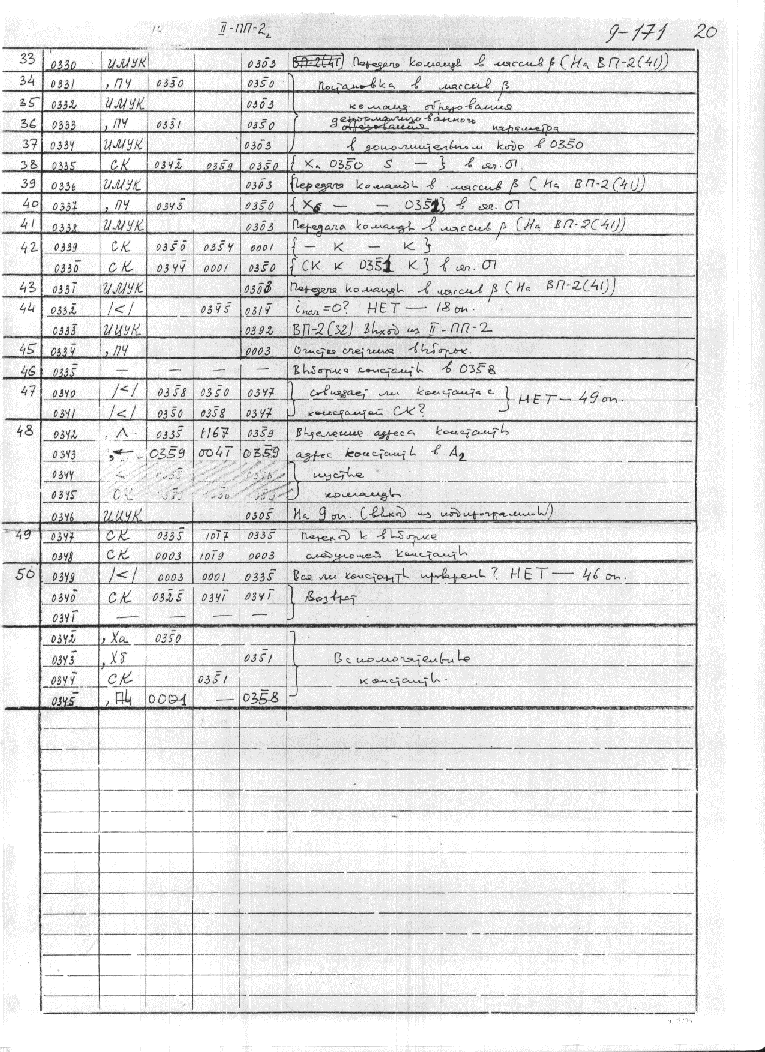 II-ПП-2₂ 9-171 20
33 0330 ИМУК 0303 Передача команды в массив β (На ВП-2(41))
34 0331 , ПЧ 0350 0350 Постановка в массив β
35 0332 ИМУК 0303 команд образования
36 0333 , ПЧ 0351 0350 денормализованного параметра
37 0334 ИМУК 0303 в дополнительном коде в 0350
38 0335 СК 0342 0359 0350 { Ха 0350 5 — } в яч. 01
39 0336 ИМУК 0303 Передача команды в массив β (На ВП-2(41))
40 0337 , ПЧ 0345 0350 { Хб — — 0351 } в яч. 01
41 0338 ИМУК 0303 Передача команды в массив β (На ВП-2(41))
42 0339 СК 0350 0354 0001 { — К — К }
0330 СК 0344 0001 0350 { СК К 0351 К } в яч. 01
43 0331 ИМУК 0303 Передача команды в массив β (На ВП-2(41))
44 0332 |<| 0345 0314 = 0? НЕТ — 18 оп.
0333 ИЦУК 0392 ВП-2(32) Выход из II-ПП-2
45 0334 , ПЧ — — 0003 Очистка счетчика выборок.
46 0335 — — — — Выборка константы в 0358
47 0340 |<| 0358 0350 0347 совпадает ли константа с НЕТ — 49 оп.
0341 |<| 0350 0358 0347 константой СК?
48 0342 , Λ 0335 1167 0359 Выделение адреса константы
0343 , ← 0359 0041 0359 адрес константы в А₂
0344 пустые
0345 команды
0346 ИЦУК 0305 На 9 оп. (выход из подпрограммы)
49 0347 СК 0335 1017 0335 Переход к выборке
0348 СК 0003 1019 0003 следующей константы
50 0349 |<| 0003 0001 0335 Все ли константы проверены? НЕТ — 46 оп.
0340 СК 0325 0341 0341 Возврат
0341 — — —
0342 , Ха 0350
0343 , Хб 0351 Вспомогательные
0344 СК 0351 константы.
0345 , ПЧ 0001 — 0358